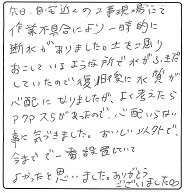 先日、自宅近くの工事現場にて
作業不具合により一時的に
断水がありました。土をこ掘り
おこしているような所で水がふさだ
していたので復旧後に水質が
心配になりましたが、よく考えたら
アクアスがあったので、心配いらない
事に気づきました。おいしい以外で、
今までで一番設置していて
よかったと思いました。ありがとう
ございました。